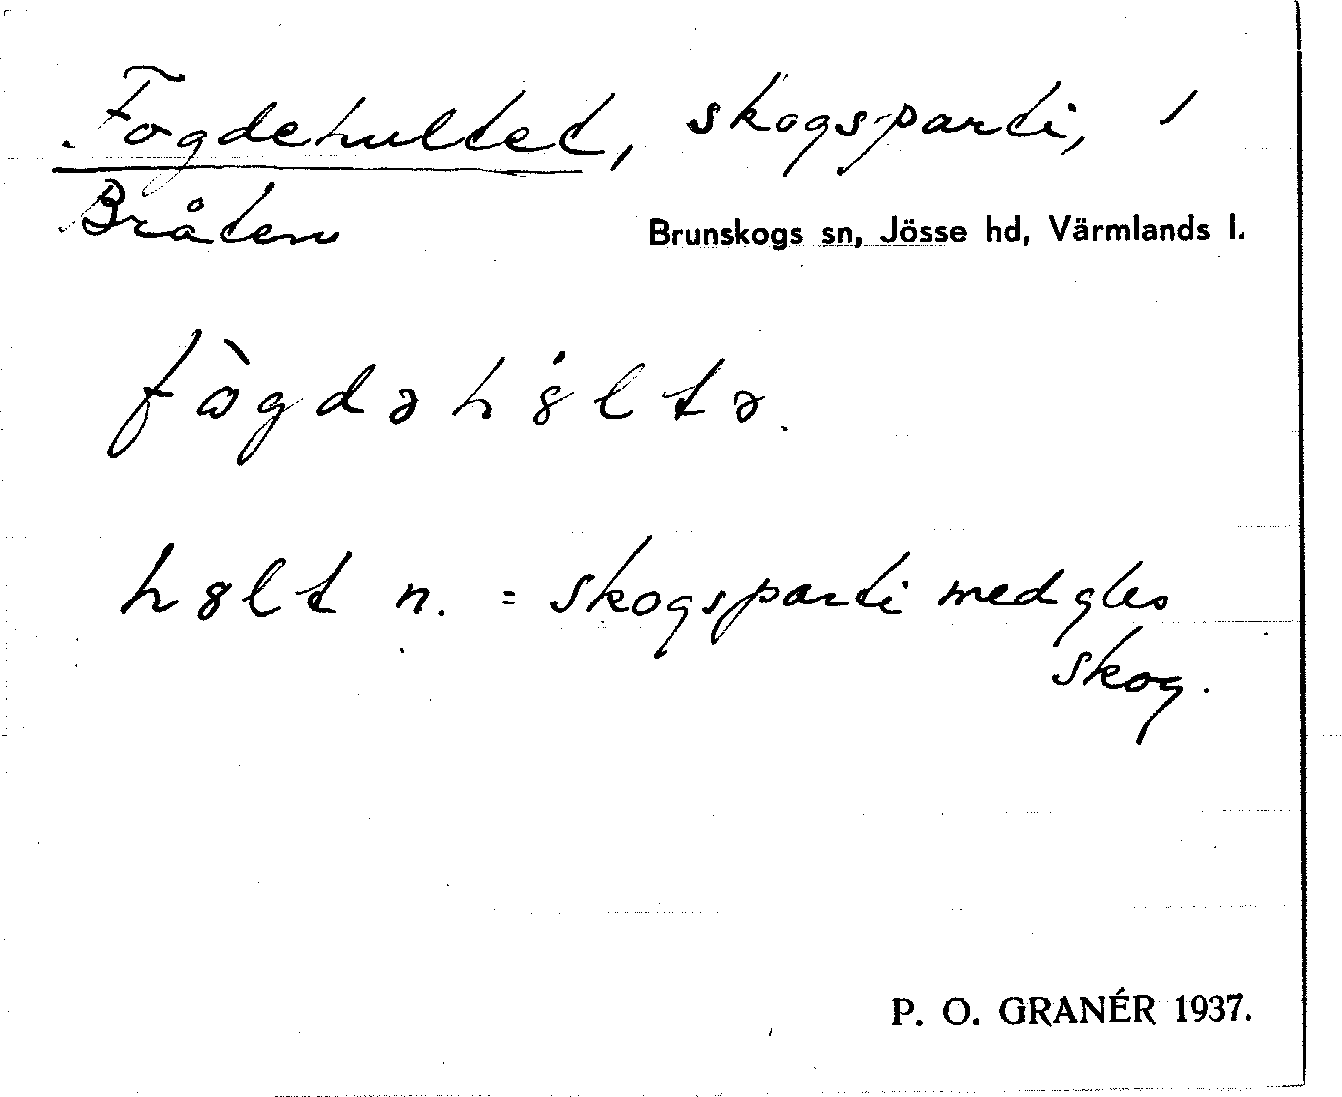 Fogdehultet, skogsparti, 1
Bråten
Brunskogs sn, Jösse hd, Värmlands l.
fògdəhↄ̇ltə.
hↄlt n. = skogsparti med gles
skog.
P. O. GRANÉR 1937.